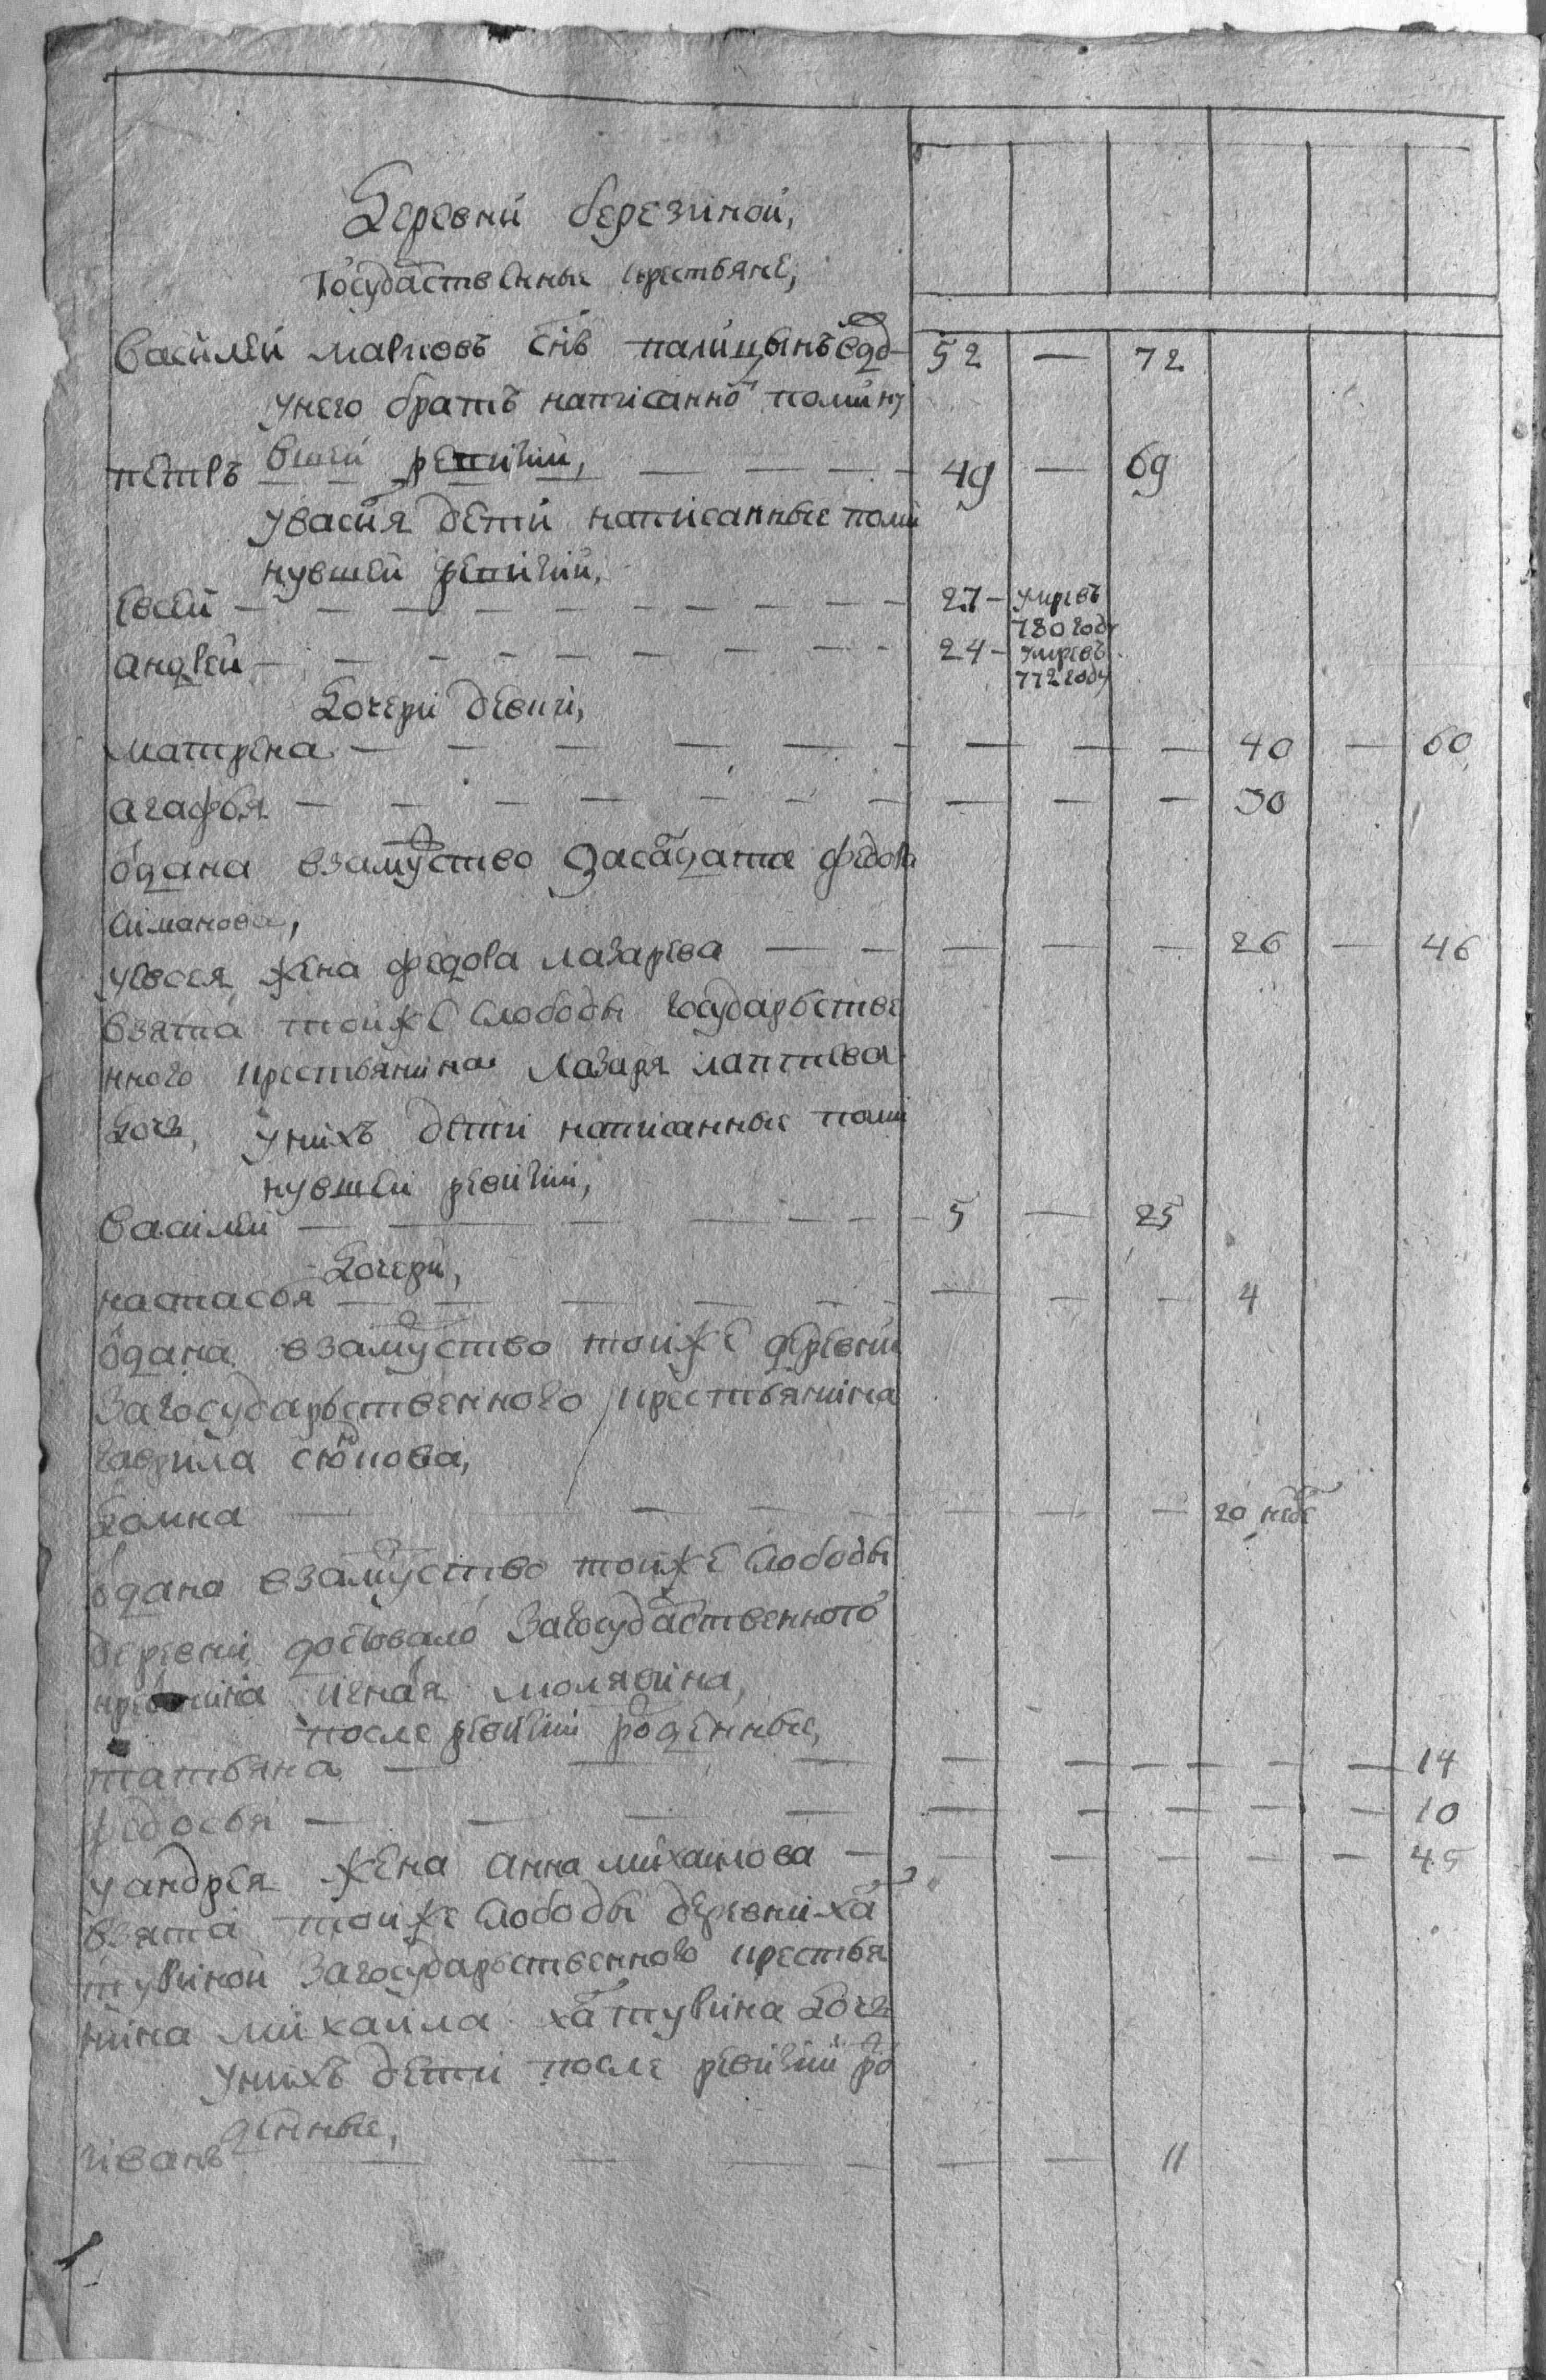 Деревни березиной,
Государственные крестьяне,
Василей марковъ снъ палицынъ вдо- 52 — 72
унего братъ написанной помину
петръ вшей ревизии, — 49 — 69
увасиля дети написанные поми
нувшей ревизии,
Евсей — 27 — умревъ 780 году
андрей — 24 — умревъ 772 году
Дочери девки,
матрена — 40 — 60
агафья — 30
одана взамуство засолдата федора
симанова,
уевсея жена федора лазарева — 26 — 46
взята тойже слободы государстве
нного крестьянина лазаря лаптева
дочь, унихъ дети написанные поми
нувшей ревизии,
василей — 5 — 25
Дочери,
настасья — 4
одана взамуство тойже деревни
загосударственного крестьянина
гаврила
домна — 20 неде
одана взамуство тойже слободы
деревни загосударственного
игнатья молявина,
после ревизии роденные,
татьяна — 14
федосья — 10
уандрея жена анна михаилова — 45
взята тойже слободы деревни ха
туриной загосударственного крестья
нина михаила хатурина дочь
унихъ дети после ревизии ро
денные,
иванъ — 11